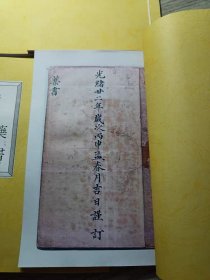 光緒廿二年歲次丙申孟春月吉日謹訂
藥書
藥書